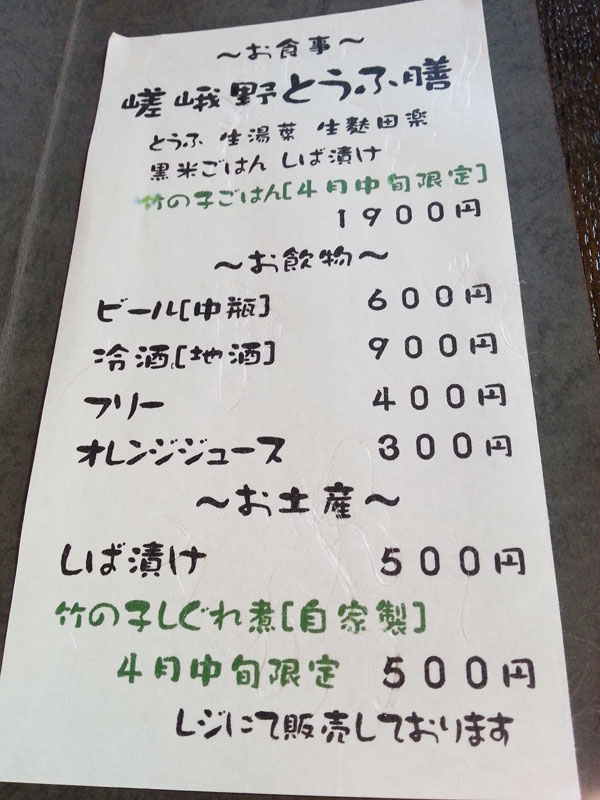 ～お食事～
嵯峨野とうふ膳
とうふ 生湯葉 生麩田楽
黒米ごはん しば漬け
竹の子ごはん[4月中旬限定]
1900円
～お飲物～
ビール[中瓶] 600円
冷酒[地酒] 900円
フリー 400円
オレンジジュース 300円
～お土産～
しば漬け 500円
竹の子しぐれ煮[自家製]
4月中旬限定 500円
レジにて販売しております